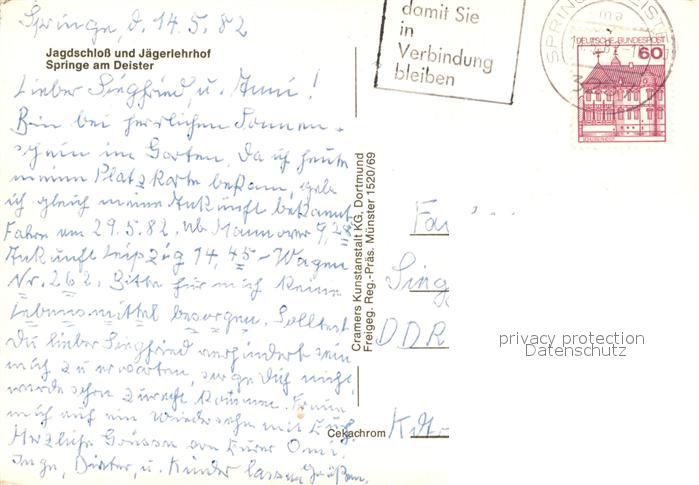 Springe, d. 14.5.82
Jagdschloß und Jägerlehrhof
Springe am Deister
Lieber Siegfried, u. Anni!
Bin bei herrlichen Sonnen-
schein im Garten. Da ich heute
meine Platzkarte bekam, gebe
ich gleich meine Ankunft bekannt
Fahre am 29.5.82. ab Hannover 9,28
Ankunft Leipzig 14,45 - Wagen
Nr. 262. Bitte für mich keine
Lebensmittel besorgen. Solltest
Du lieber Siegfried verhindert sein
mich zu erwarten, sorge Dich nicht
werde schon zurecht kommen. Freue
mich auf ein Wiedersehn mit Euch.
Herzliche Grüsse von Eurer Omi.
Inge, Dieter, u. Kinder lassen grüßen.
Cramers Kunstanstalt KG, Dortmund
Freigeg. Reg.-Präs. Münster 1520/69
Cekachrom
damit Sie
in
Verbindung
bleiben
SPRINGE DEIST
ma
DEUTSCHE BUNDESPOST
60
Fa
Sieg
DDR
privacy protection
Datenschutz